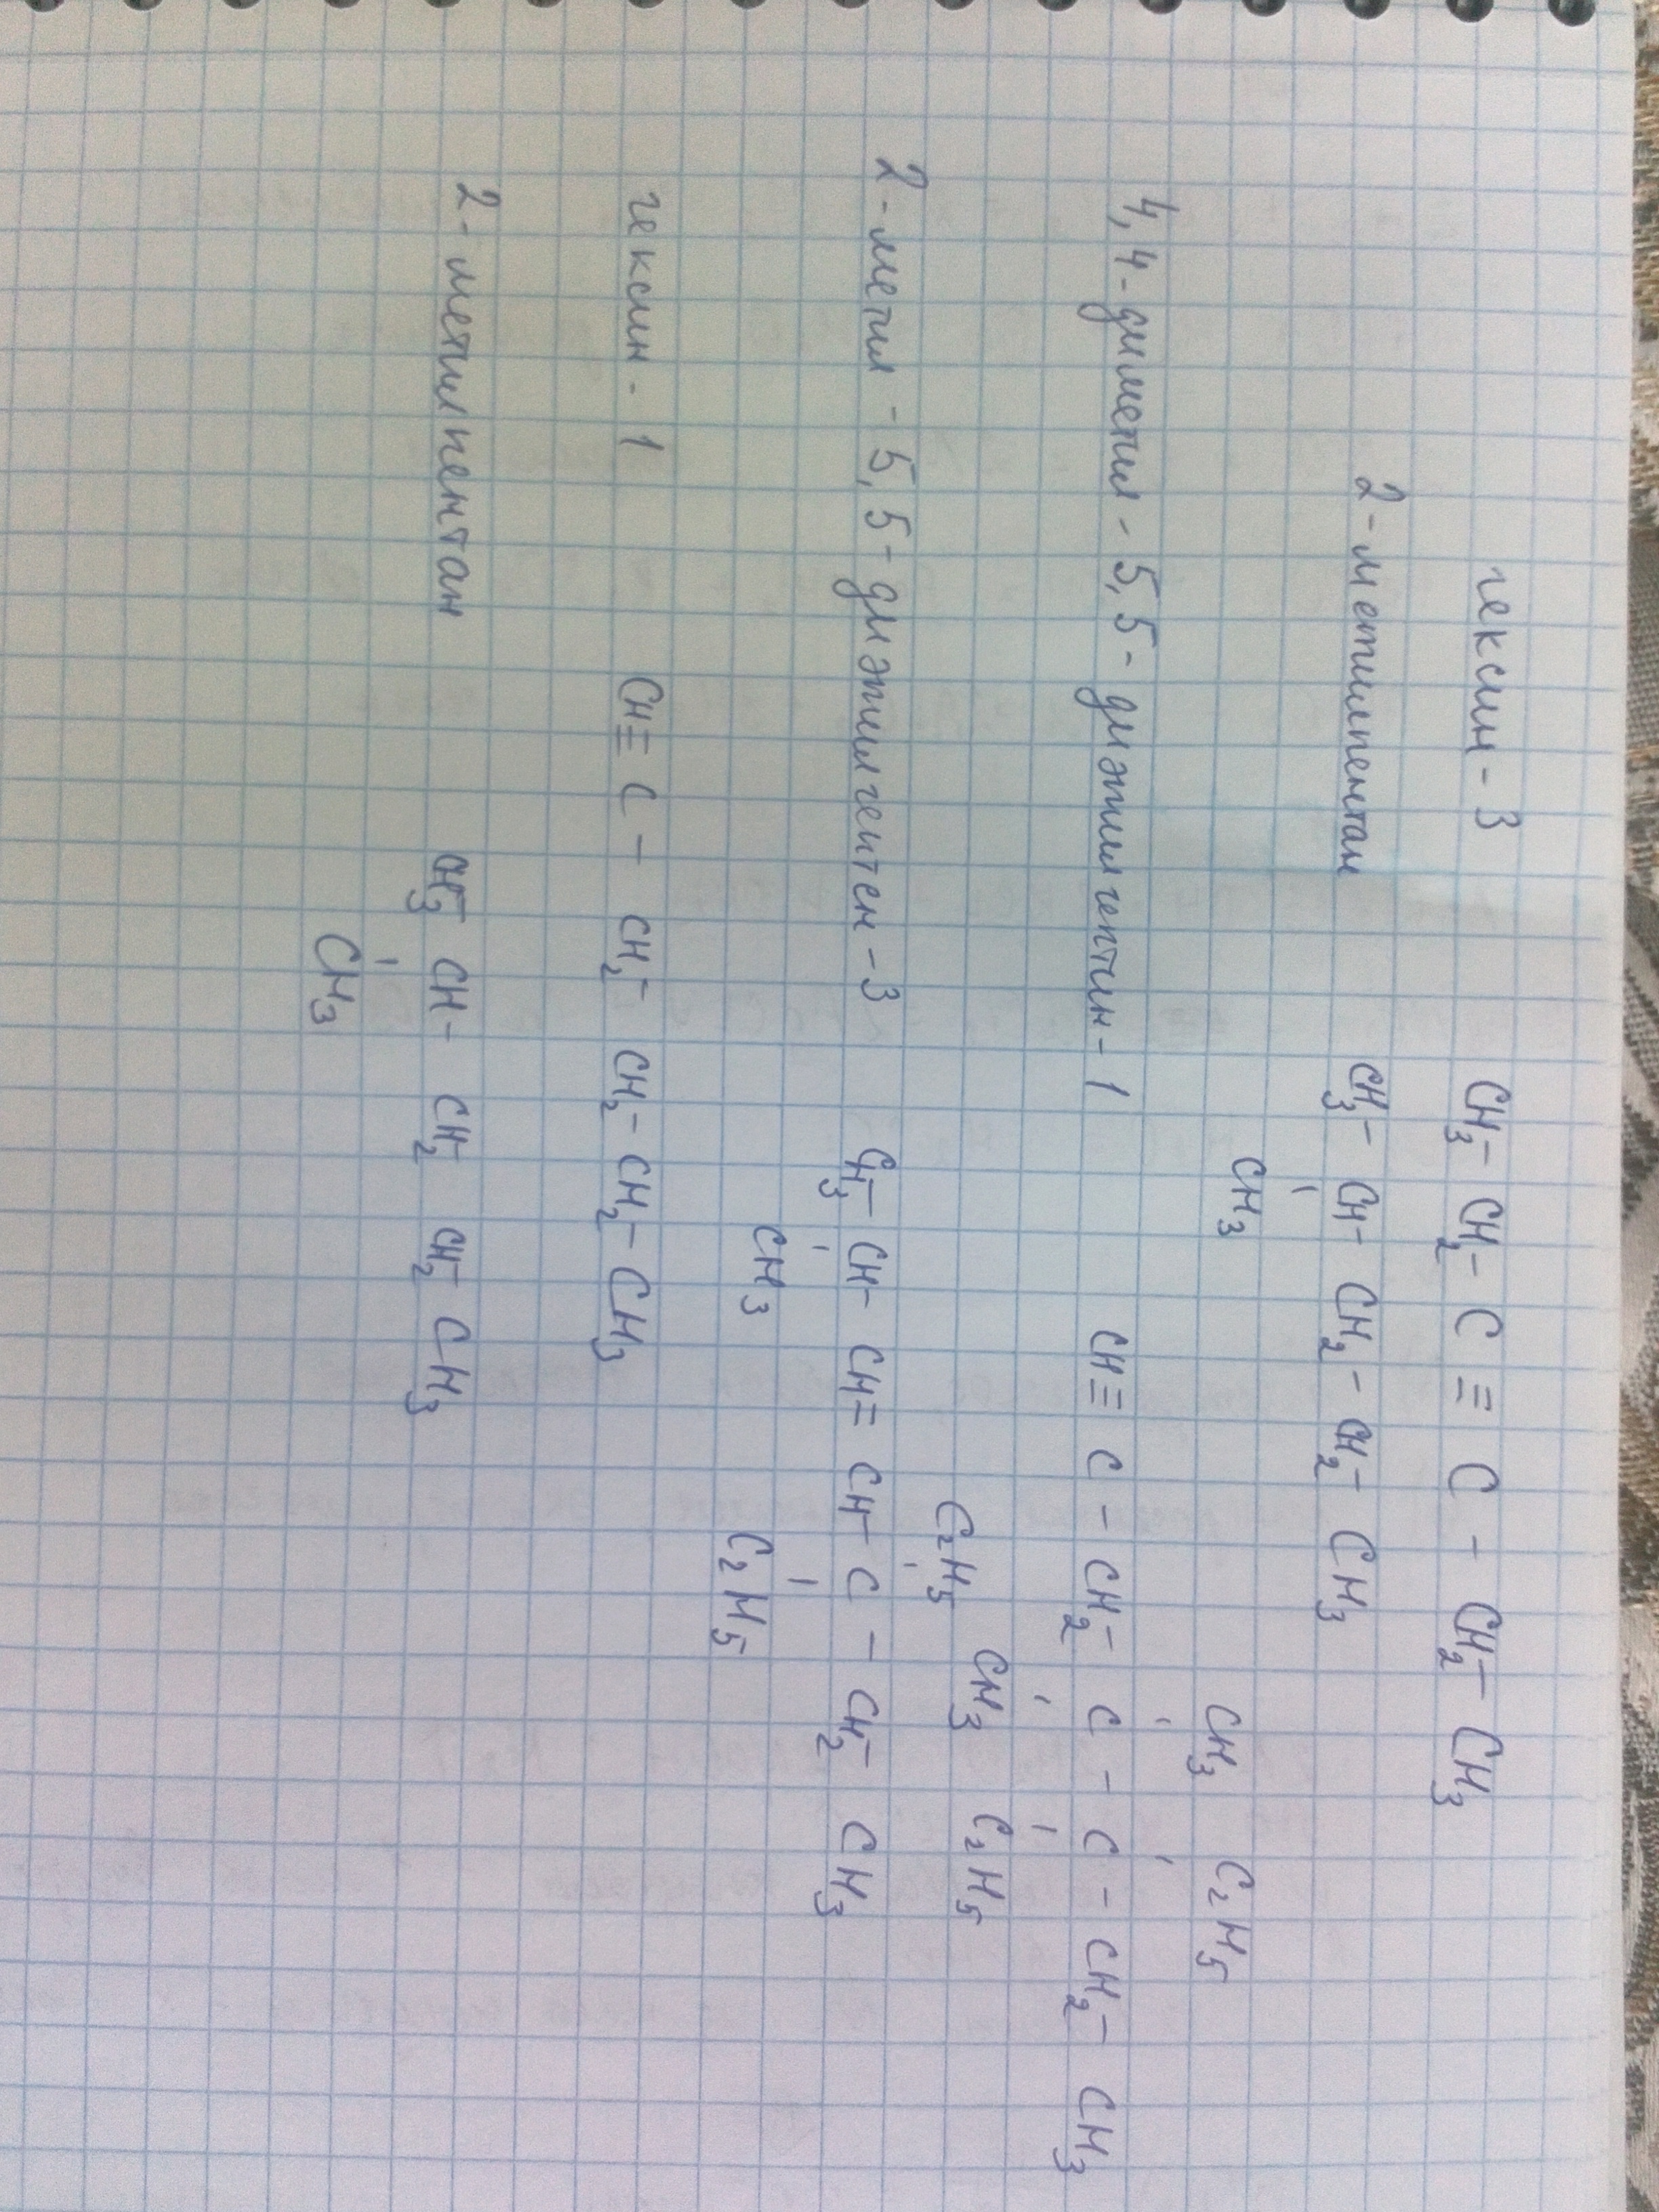 гексин - 3 CH3 - CH2 - C ≡ C - CH2 - CH3
2 - метилпентан CH3 - CH - CH2 - CH2 - CH3
CH3
CH3 C2H5
4,4 - диметил - 5,5 - диэтилгептин - 1 CH ≡ C - CH2 - C - C - CH2 - CH3
CH3 C2H5
C2H5
2 - метил - 5,5 - диэтилгептен - 3 CH3 - CH - CH = CH - C - CH2 - CH3
CH3 C2H5
гексин - 1 CH ≡ C - CH2 - CH2 - CH2 - CH3
2 - метилпентан CH3 - CH - CH2 - CH2 - CH3
CH3